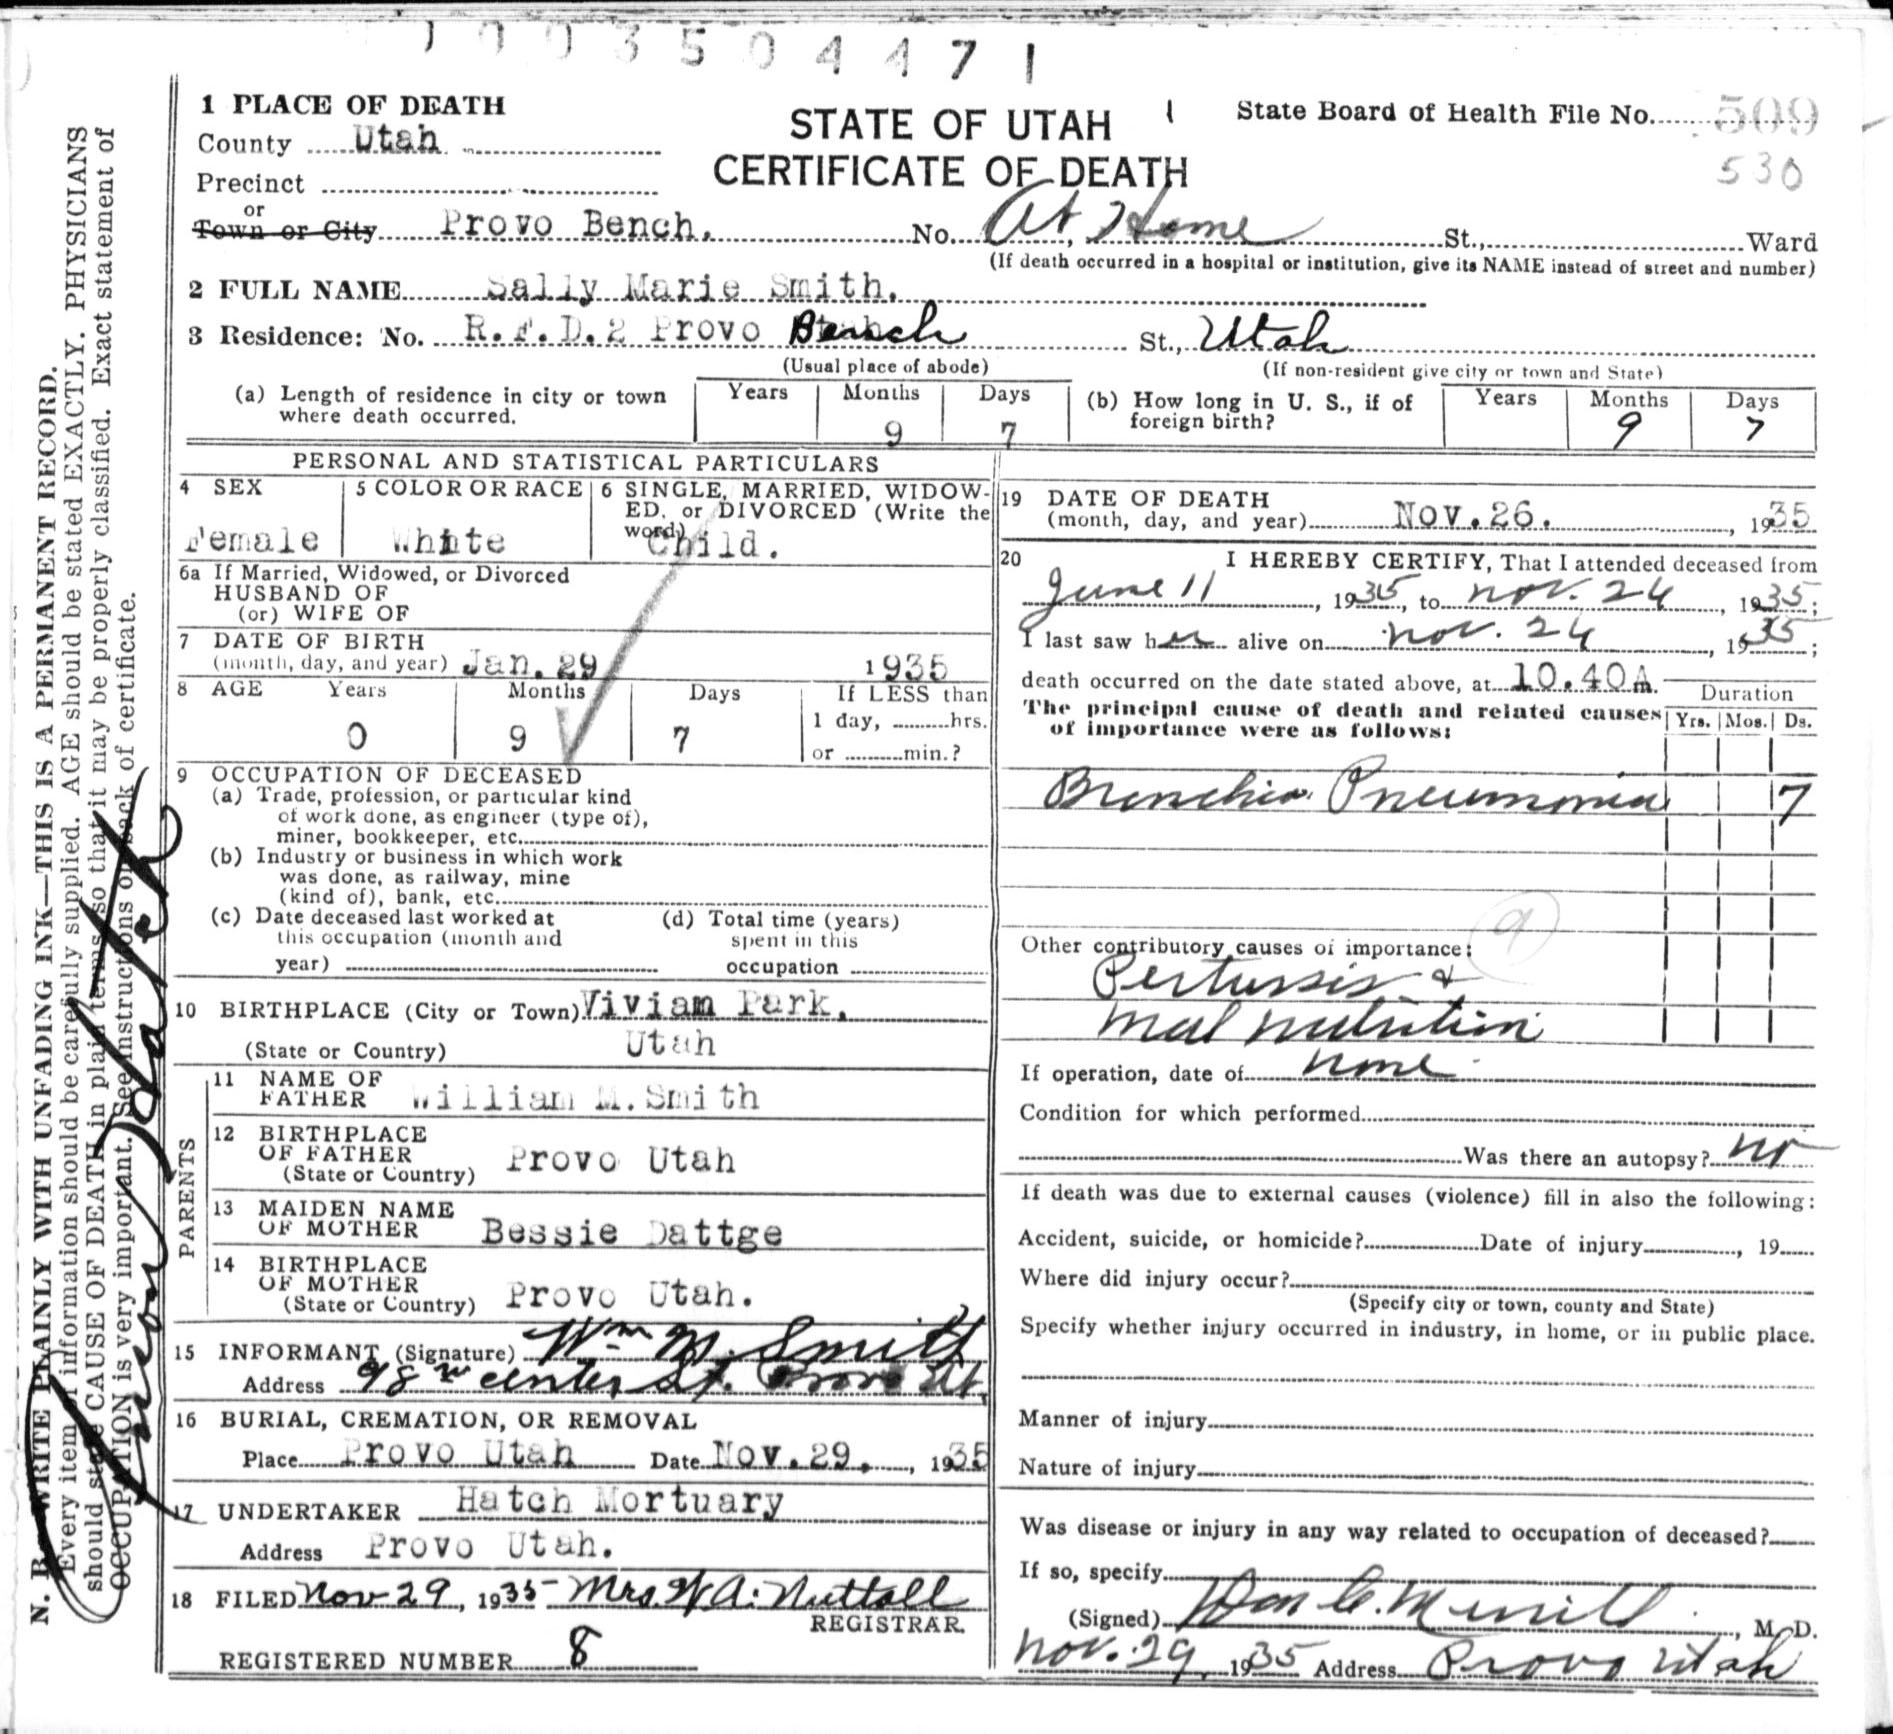 1003504471
1 PLACE OF DEATH
County Utah
Precinct
or
Town or City Provo Bench. No. At Home St., Ward
STATE OF UTAH
CERTIFICATE OF DEATH
State Board of Health File No. 509
530
(If death occurred in a hospital or institution, give its NAME instead of street and number)
2 FULL NAME Sally Marie Smith.
3 Residence: No. R.F.D.2 Provo Bench St., Utah
(Usual place of abode) (If non-resident give city or town and State)
(a) Length of residence in city or town where death occurred. Years Months 9 Days 7
(b) How long in U. S., if of foreign birth? Years Months 9 Days 7
PERSONAL AND STATISTICAL PARTICULARS
4 SEX
Female
5 COLOR OR RACE
White
6 SINGLE, MARRIED, WIDOW-
ED, or DIVORCED (Write the
word)
Child.
6a If Married, Widowed, or Divorced
HUSBAND OF
(or) WIFE OF
7 DATE OF BIRTH
(month, day, and year) Jan. 29 1935
8 AGE Years Months Days If LESS than
1 day, hrs.
0 9 7
or min.?
9 OCCUPATION OF DECEASED
(a) Trade, profession, or particular kind
of work done, as engineer (type of),
miner, bookkeeper, etc.
(b) Industry or business in which work
was done, as railway, mine
(kind of), bank, etc.
(c) Date deceased last worked at
this occupation (month and
year)
(d) Total time (years)
spent in this
occupation
10 BIRTHPLACE (City or Town) Vivian Park,
(State or Country) Utah
PARENTS
11 NAME OF
FATHER William M. Smith
12 BIRTHPLACE
OF FATHER
(State or Country) Provo Utah
13 MAIDEN NAME
OF MOTHER Bessie Dattge
14 BIRTHPLACE
OF MOTHER
(State or Country) Provo Utah.
15 INFORMANT (Signature) Wm M. Smith
Address 98 W center St. Provo Ut.
16 BURIAL, CREMATION, OR REMOVAL
Place Provo Utah Date Nov. 29, 1935
17 UNDERTAKER Hatch Mortuary
Address Provo Utah.
18 FILED Nov 29, 1935 - Mrs. W A. Nuttall
REGISTRAR.
REGISTERED NUMBER 8
19 DATE OF DEATH
(month, day, and year) Nov. 26. , 1935
20 I HEREBY CERTIFY, That I attended deceased from
June 11, 1935, to Nov. 24, 1935;
I last saw her alive on Nov. 24, 1935;
death occurred on the date stated above, at 10.40A.
Duration
The principal cause of death and related causes
of importance were as follows:
Yrs. Mos. Ds.
Bronchio Pneumonia 7
9
Other contributory causes of importance:
Pertussis &
Mal nutrition
If operation, date of none
Condition for which performed
Was there an autopsy? no
If death was due to external causes (violence) fill in also the following:
Accident, suicide, or homicide? Date of injury , 19
Where did injury occur?
(Specify city or town, county and State)
Specify whether injury occurred in industry, in home, or in public place.
Manner of injury
Nature of injury
Was disease or injury in any way related to occupation of deceased?
If so, specify
(Signed) Don C. Merrill, M. D.
Nov. 29, 1935 Address Provo Utah
N. B.—WRITE PLAINLY WITH UNFADING INK—THIS IS A PERMANENT RECORD.
Every item of information should be carefully supplied. AGE should be stated EXACTLY. PHYSICIANS
should state CAUSE OF DEATH in plain terms so that it may be properly classified. Exact statement of
OCCUPATION is very important. See instructions on back of certificate.